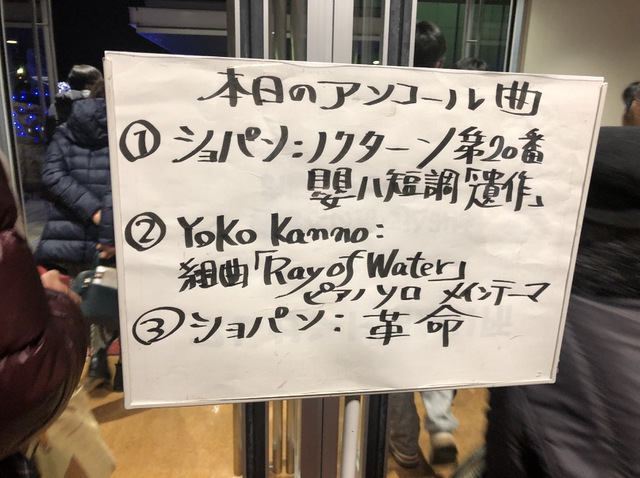 本日のアンコール曲
① ショパン:ノクターン第20番
嬰ハ短調「遺作」
② Yoko Kanno:
組曲「Ray of Water」
ピアノソロ メインテーマ
③ ショパン: 革命